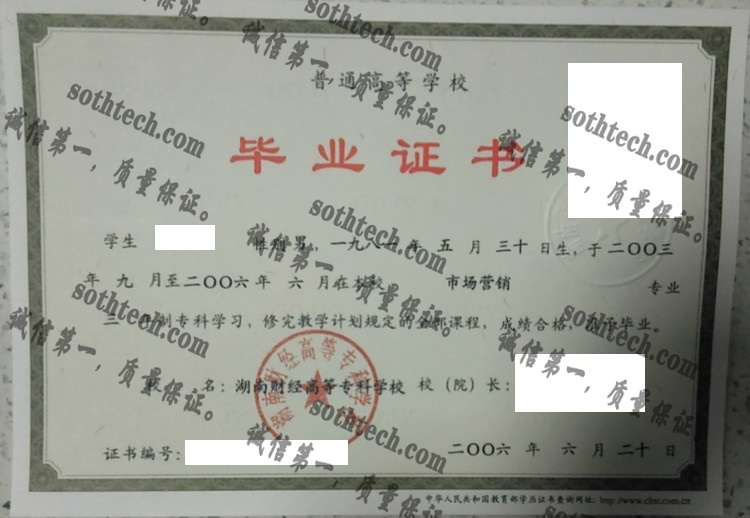 普通高等学校
毕业证书
学生 性别男，一九八一年 五 月 三十 日生，于二〇〇三
年 九 月至二〇〇六年 六 月在本校 市场营销 专业
三 年制专科学习，修完教学计划规定的全部课程，成绩合格，准予毕业。
校 名：湖南财经高等专科学校 校（院）长：
湖南财经高等专科学校
证书编号： 二〇〇六 年 六 月 二十 日
中华人民共和国教育部学历证书查询网址：http://www.chsi.com.cn
sothtech.com
诚信第一，质量保证。
sothtech.com
诚信第一，质量保证。
sothtech.com
诚信第一，质量保证。
sothtech.com
诚信第一，质量保证。
sothtech.com
诚信第一，质量保证。
sothtech.com
诚信第一，质量保证。
sothtech.com
诚信第一，质量保证。